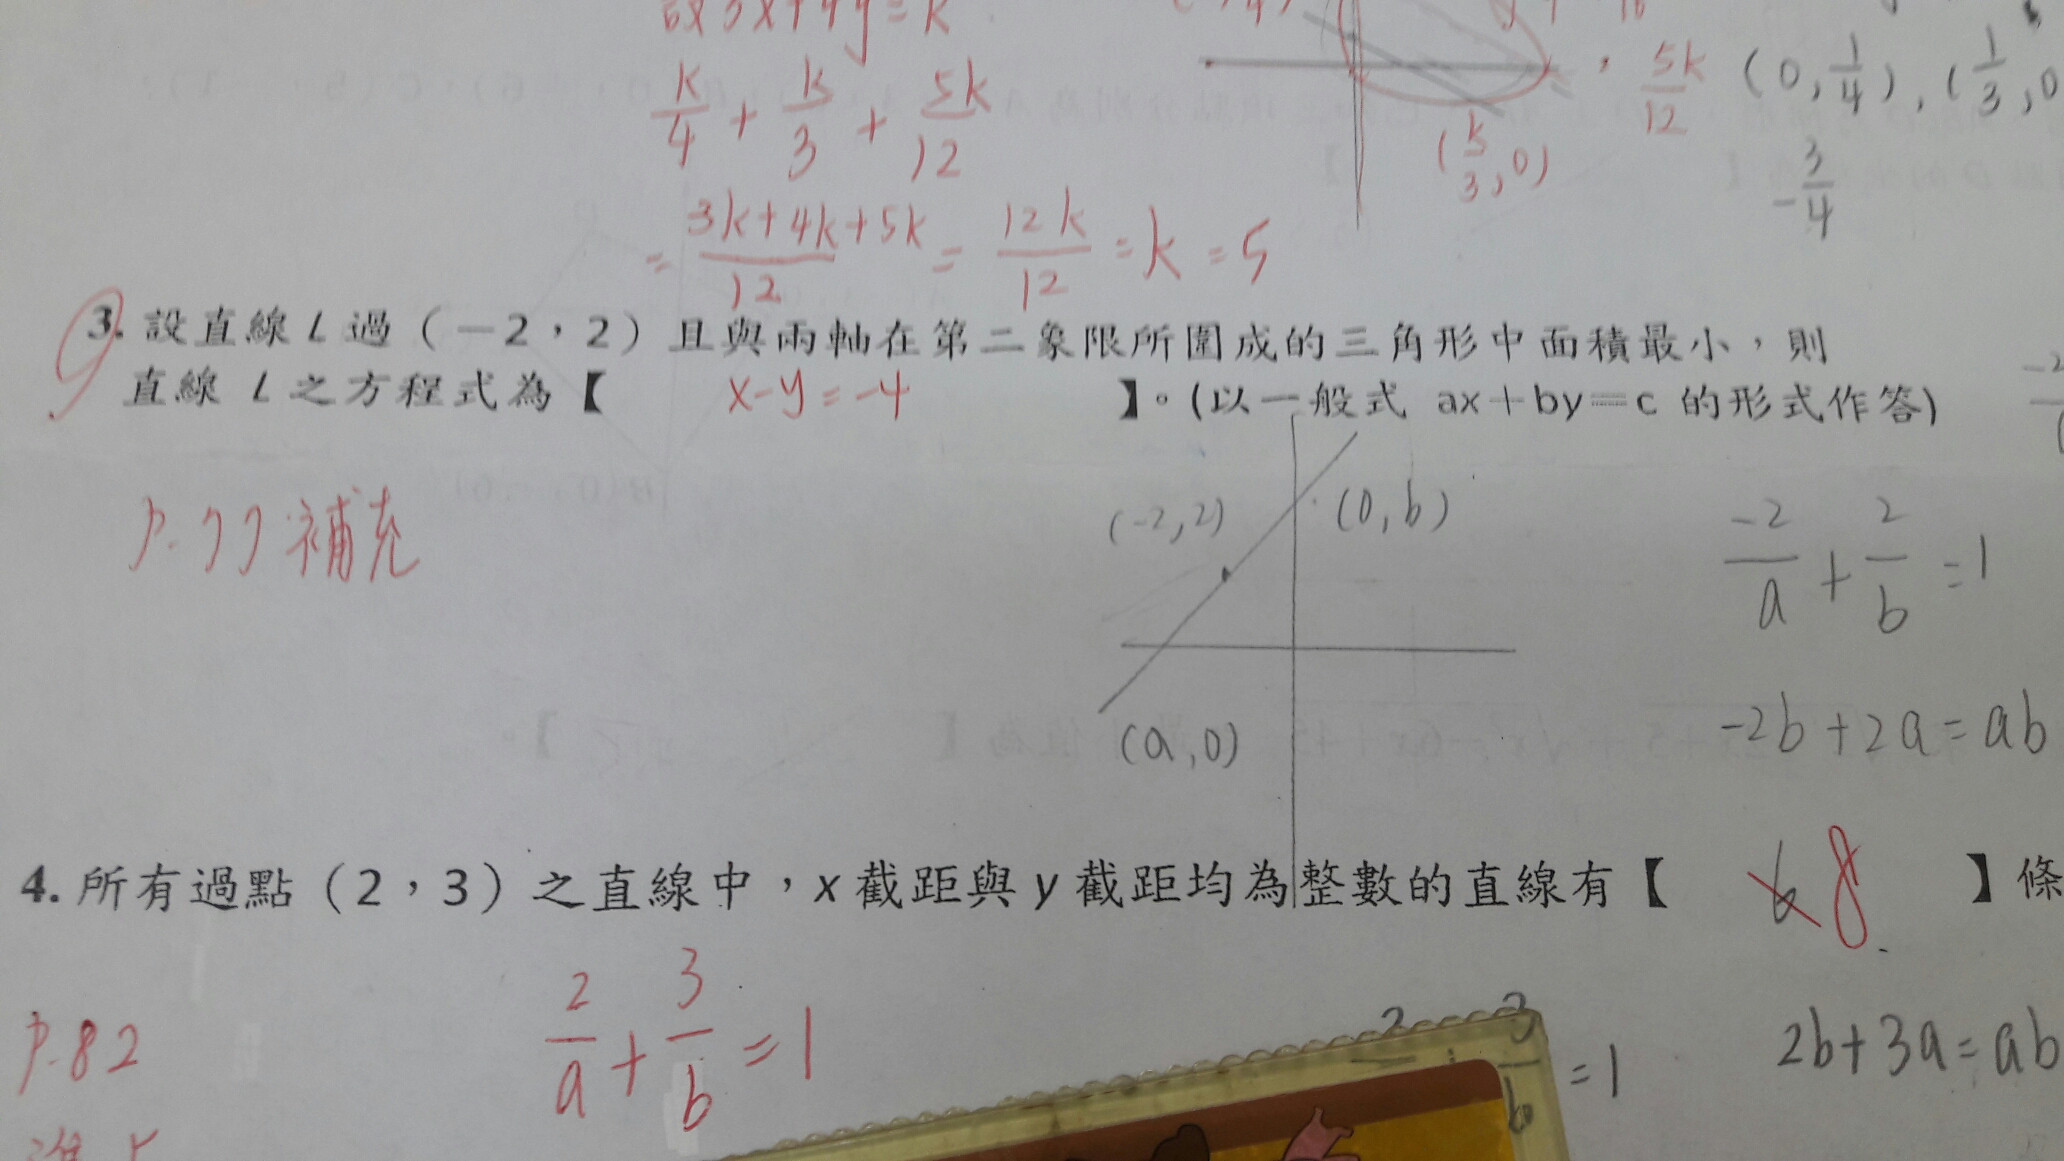 3x+4y=k
k/4 + k/3 + 5k/12
= 3k+4k+5k/12 = 12k/12 = k = 5
(k/3,0)
5k/12
(0,1/4),(1/3,0
-3/4
3. 設直線 L 過（－2，2）且與兩軸在第二象限所圍成的三角形中面積最小，則
直線 L 之方程式為【 x-y=-4 】。(以一般式 ax＋by＝c 的形式作答)
P.77 補充
(-2,2)
(0,b)
(a,0)
-2/a + 2/b = 1
-2b+2a=ab
4. 所有過點（2，3）之直線中，x 截距與 y 截距均為整數的直線有【 6 8 】條
P.82
2/a + 3/b = 1
3/b = 1
2b+3a=ab